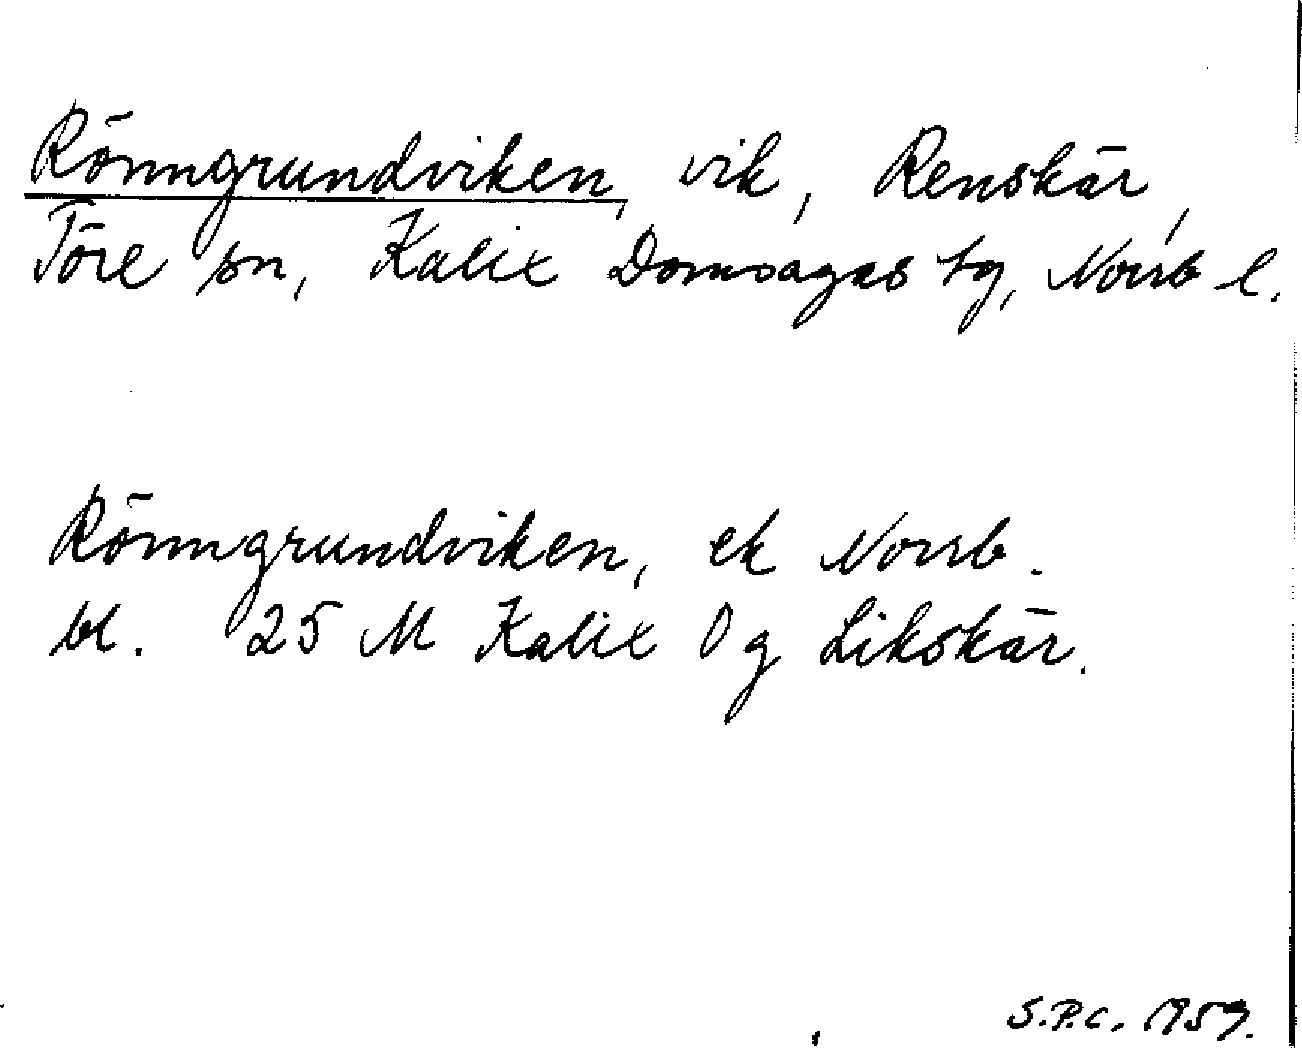 Rönngrundviken, vik, Renskär,
Töre sn, Kalix Domsagas tg, Norrb l.
Rönngrundviken, ek Norrb.
bl. 25 M Kalix O g Likskär.
S.P.C. 1959.